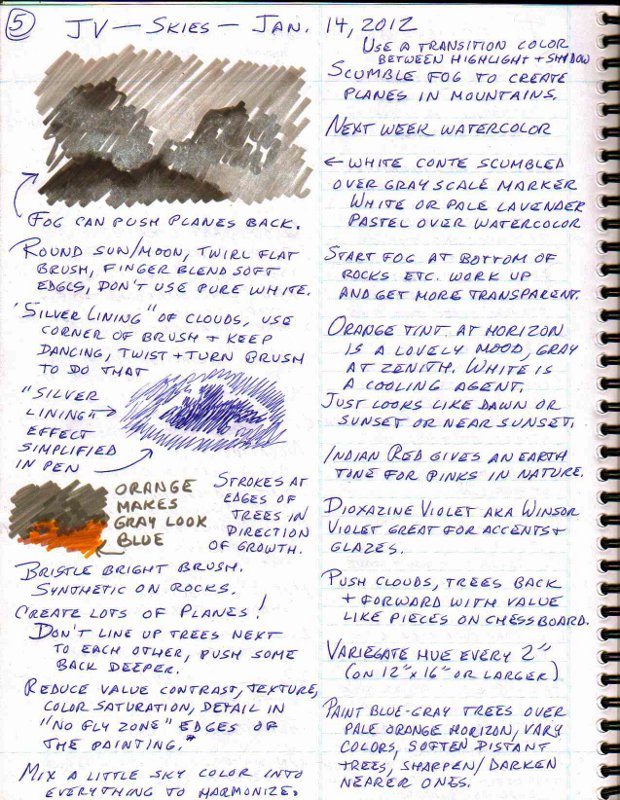 5 JV — SKIES — JAN. 14, 2012
FOG CAN PUSH PLANES BACK.
ROUND SUN/MOON, TWIRL FLAT
BRUSH, FINGER BLEND SOFT
EDGES, DON'T USE PURE WHITE.
"SILVER LINING" OF CLOUDS, USE
CORNER OF BRUSH + KEEP
DANCING, TWIST + TURN BRUSH
TO DO THAT
"SILVER
LINING"
EFFECT
SIMPLIFIED
IN PEN
ORANGE
MAKES
GRAY LOOK
BLUE
STROKES AT
EDGES OF
TREES IN
DIRECTION
OF GROWTH.
BRISTLE BRIGHT BRUSH.
SYNTHETIC ON ROCKS.
CREATE LOTS OF PLANES!
DON'T LINE UP TREES NEXT
TO EACH OTHER, PUSH SOME
BACK DEEPER.
REDUCE VALUE CONTRAST, TEXTURE,
COLOR SATURATION, DETAIL IN
"NO FLY ZONE" EDGES OF
THE PAINTING.*
MIX A LITTLE SKY COLOR INTO
EVERYTHING TO HARMONIZE.
USE A TRANSITION COLOR
BETWEEN HIGHLIGHT + SHADOW
SCUMBLE FOG TO CREATE
PLANES IN MOUNTAINS.
NEXT WEEK WATERCOLOR
← WHITE CONTE SCUMBLED
OVER GRAY SCALE MARKER
WHITE OR PALE LAVENDER
PASTEL OVER WATERCOLOR
START FOG AT BOTTOM OF
ROCKS ETC. WORK UP
AND GET MORE TRANSPARENT.
ORANGE TINT AT HORIZON
IS A LOVELY MOOD, GRAY
AT ZENITH. WHITE IS
A COOLING AGENT.
JUST LOOKS LIKE DAWN OR
SUNSET OR NEAR SUNSET.
INDIAN RED GIVES AN EARTH
TONE FOR PINKS IN NATURE.
DIOXAZINE VIOLET AKA WINSOR
VIOLET GREAT FOR ACCENTS +
GLAZES.
PUSH CLOUDS, TREES BACK
+ FORWARD WITH VALUE
LIKE PIECES ON CHESSBOARD.
VARIEGATE HUE EVERY 2"
(ON 12" x 16" OR LARGER)
PAINT BLUE-GRAY TREES OVER
PALE ORANGE HORIZON, VARY
COLORS, SOFTEN DISTANT
TREES, SHARPEN/DARKEN
NEARER ONES.